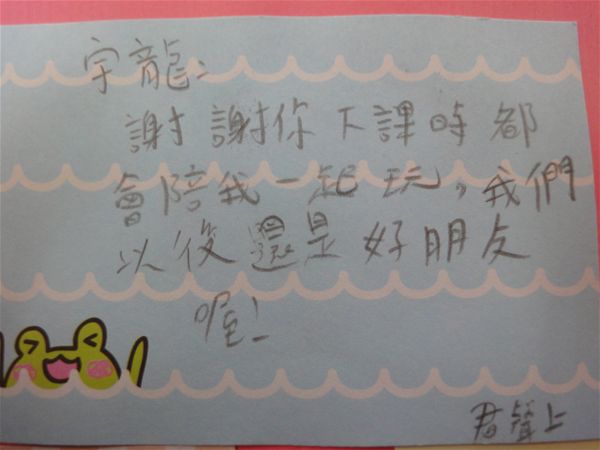 宇龍：
謝謝你下課時都
會陪我一起玩，我們
以後還是好朋友
喔！
君聲上